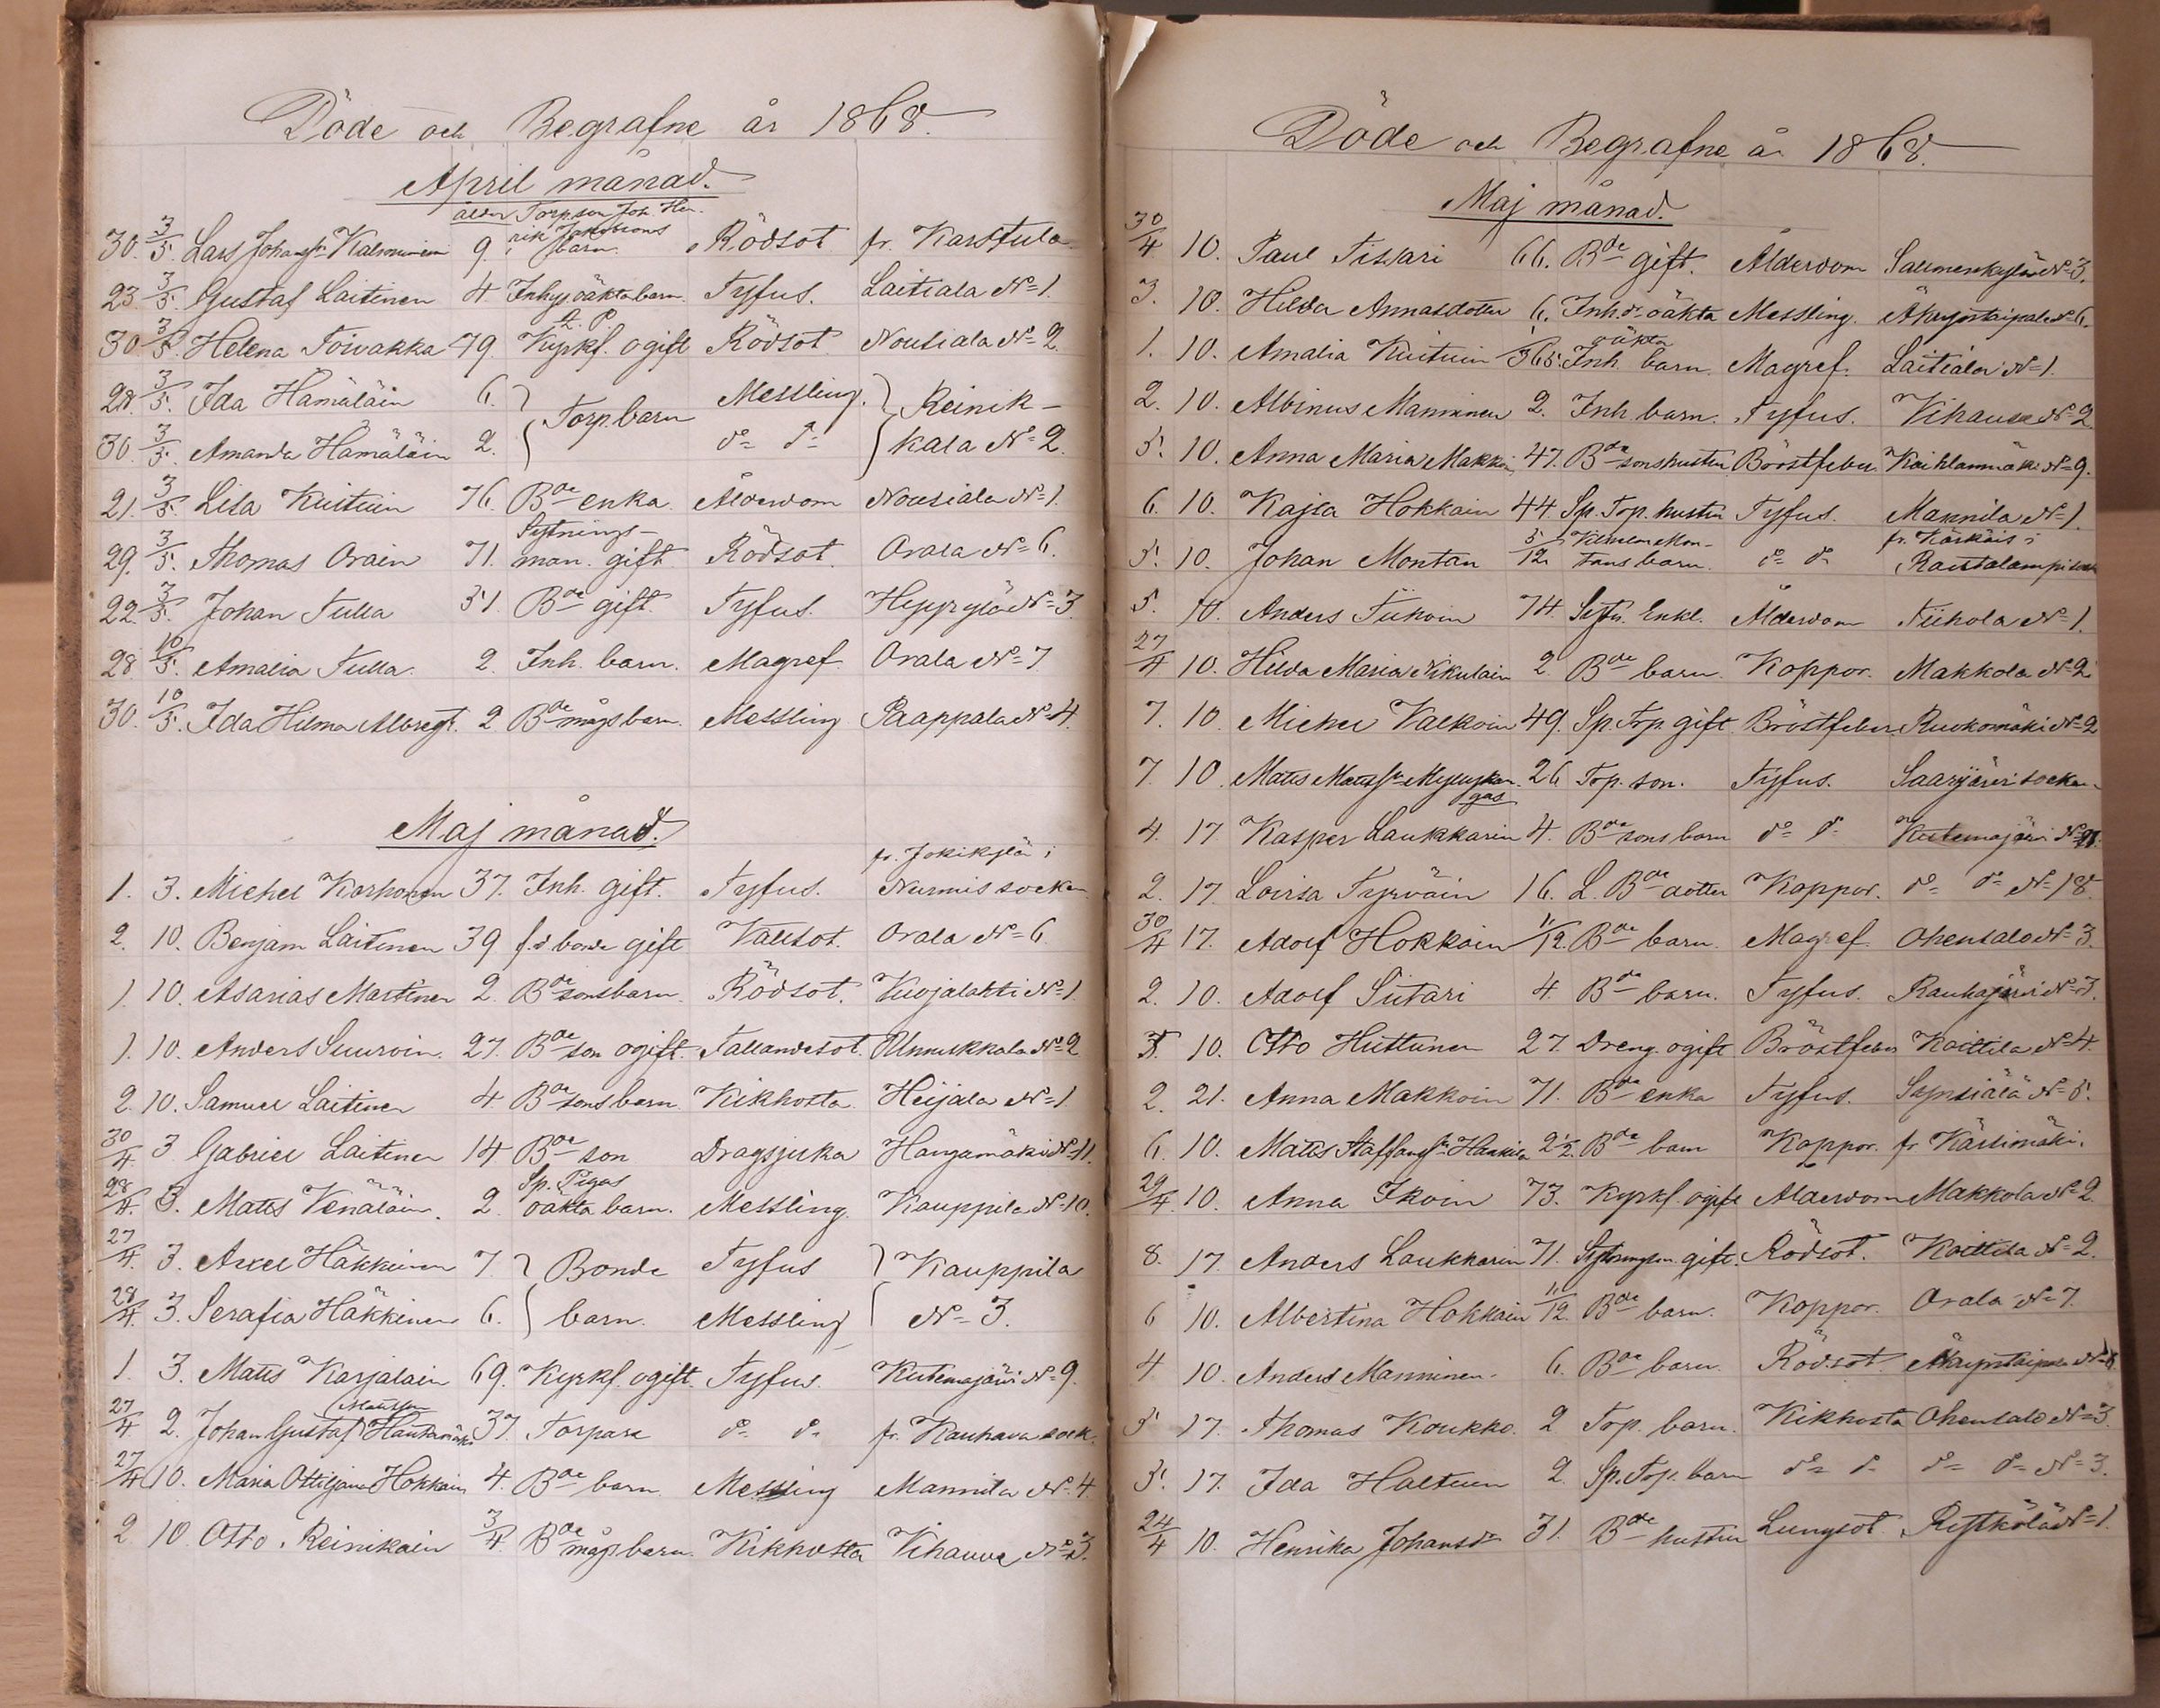 Döde och Begrafne år 1868.
April månad.
30. 3/5. Lars Johansson 9. barn. Rödsot fr. Karstula
23. 3/5. Gustaf Laitinen 4 Inhys oäkta barn. Tyfus. Laitiala N=1.
30 3/5. Helena Toivakka 79. Kyrkf. ogift Rödsot Nousiala N=2.
28. 3/5. Ida Hämäläin 6. Torp. barn Messling. Reinik-
30. 3/5. Amanda Hämäläin 2. do do kala N=2.
21. 3/5. Lisa Kuituin 76. Bde enka Ålderdom Nousiala N=1.
29. 3/5. Thomas Orain 71. Sytnings-man. gift Rödsot. Orala N=6.
22. 3/5. Johan Tulla 51. Bde gift. Tyfus. Hyyrylä N=3.
28 10/5. Amalia Tulla. 2. Inh. barn. Magref. Orala N=7
30. 10/5. Ida Hilma Albregt. 2 Bde mågs barn. Messling Paappala N=4.
Maj månad.
fr. Jokikylä i
1. 3. Michel Korhonen 37. Inh. gift. Tyfus. Nurmis socken
2. 10. Benjam Laitinen 39 f.d. bonde gift Vattsot. Orala N=6
1. 10. Asarias Martinen 2. Bde sonsbarn. Rödsot. Kuojalahti N=1
1. 10. Anders Suuroin. 27. Bde son ogift. Fallandesot. Unnukkala N=2
2. 10. Samuel Laitinen 4. Bde sons barn. Kikhosta. Heijala N=1
30/4. 3 Gabriel Laitinen 14 Bde son Dragsjuka Hangamäki N=11.
28/4. 3. Matts Venäläin. 2. Sp. Pigas oäkta barn. Messling. Kauppila N=10.
27/4. 3. Axel Häkkinen 7. Bonde Tyfus Kauppila
28/4. 3. Serafia Häkkinen 6. barn. Messling N=3.
1. 3. Matts Karjalain 69. Kyrkf. ogift. Tyfus. Kutemajärvi N=9.
27/4 2. Johan Gustaf Mattsson Hautamäki 37. Torpare do do fr. Kauhava sock.
27/4 10. Maria Ottiljana Hokkain 4. Bde barn Messling Mannila N=4.
2 10. Otto Reinikain 3/4 Bde mågs barn. Kikhosta Vihauva N=3.
Döde och Begrafne år 1868.
Maj månad.
30/4 10. Paul Tissari 66. Bde gift. Ålderdom Salmenkylä N=3.
3. 10. Hilda Annasdotter 6. Inh. dr oäkta Messling. Äkeystaipale N=6.
1. 10. Amalia Kuituin 1/365. Inh. oäkta barn. Magref. Laitiala N=1.
2. 10. Albinus Manninen 2. Inh. barn. Tyfus. Vihauva N=2.
5. 10. Anna Maria Makkoin 47. Bde sonshustru Bröstfeber Kaihlanmäki N=9.
6. 10. Kajsa Hokkain 44. Sp. Torp. hustru Tyfus. Mannila N=1.
5. 10. Johan Montan 5/12 Vilhelm Mon-tans barn. do do fr. Kärkäis i Rautalampi sock
5. 10. Anders Tiihoin 74. Sytn. Enkl. Ålderdom Tiihola N=1.
27/4 10. Hilda Maria Nikulain 2. Bde barn. Koppor. Makkola N=2.
7. 10 Michel Valkoin 49. Sp. Torp. gift Bröstfeber Ruokomäki N=2
7. 10. Matts Mattsson Myllykan-gas 26 Torp. son. Tyfus. Saarijärvi socken
4. 17 Kasper Laukkarin 4. Bde sons barn do do Kutemajärvi
2. 17. Lovisa Tyrväin 16. L. Bde dotter Koppor. do do N=18
30/4 17. Adolf Hokkain 11/12. Bde barn. Magref. Ohensalo N=3.
2. 10. Adolf Siitari 4. Bde barn. Tyfus. Rauhajärvi N=3.
3. 10. Otto Huttunen 27. Dreng. ogift Bröstfeber Koittila N=4.
2. 21. Anna Makkoin 71. Bde enka Tyfus. Synsiälä N=5.
6. 10. Matts Staffansson 2 1/2. Bde barn Koppor. fr Kärsämäki.
29/4. 10. Anna Ikoin 73. Kyrkf. ogift Ålderdom Makkola N=2
8. 17. Anders Laukkarin 71. Sytningsm. gift. Rödsot. Koittila N=2.
6 10. Albertina Hokkain 11/12. Bde barn. Koppor. Orala N=7.
4 10. Anders Manninen. 6. Bde barn. Rödsot Äkeystaipale
5 17. Thomas Koukko. 2 Torp. barn. Kikhosta Ohensalo N=3.
5. 17. Ida Haltuin 2. Sp. Torp. barn do do do do N=3.
24/4 10. Henrika Johansdr 31. Bde hustru Lungsot. Rystkölä N=1.